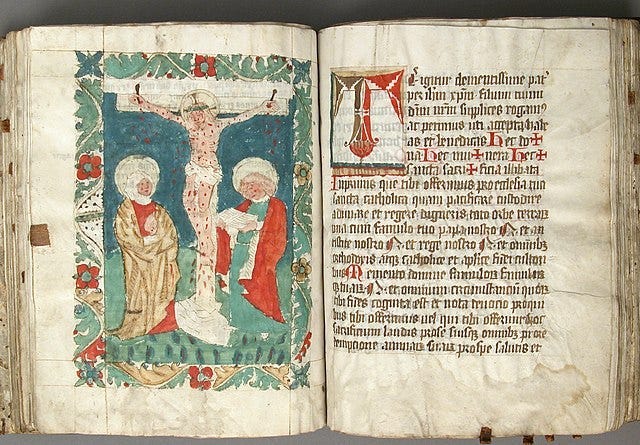 TEigitur clementissime pat
per ihm xpm filium tuum
dnm nrm suplices rogam9
ac petimus uti accepta habe
as et benedicas hec do ✠
na hec mu ✠ nera hec ✠
sancta sacri ✠ ficia illibata
Inprimis que tibi offerimus pro ecclesia tua
sancta catholica quam pacificare custodire
adunare et regere digneris toto orbe terrar
una cum famulo tuo papa nostro N et an
tistite nostro N et rege nostro N et omnibus
orthodoxis atqz catholice et aplice fidei cultori
bus Memento domine famulorum famularum
qz tuar N et omnium circumstantium quor
tibi fides cognita est et nota devocio pro qui
bus tibi offerimus uel qui tibi offerunt hoc
sacrificium laudis pro se suisqz omnibus pro re
dempcione animar suar pro spe salutis et